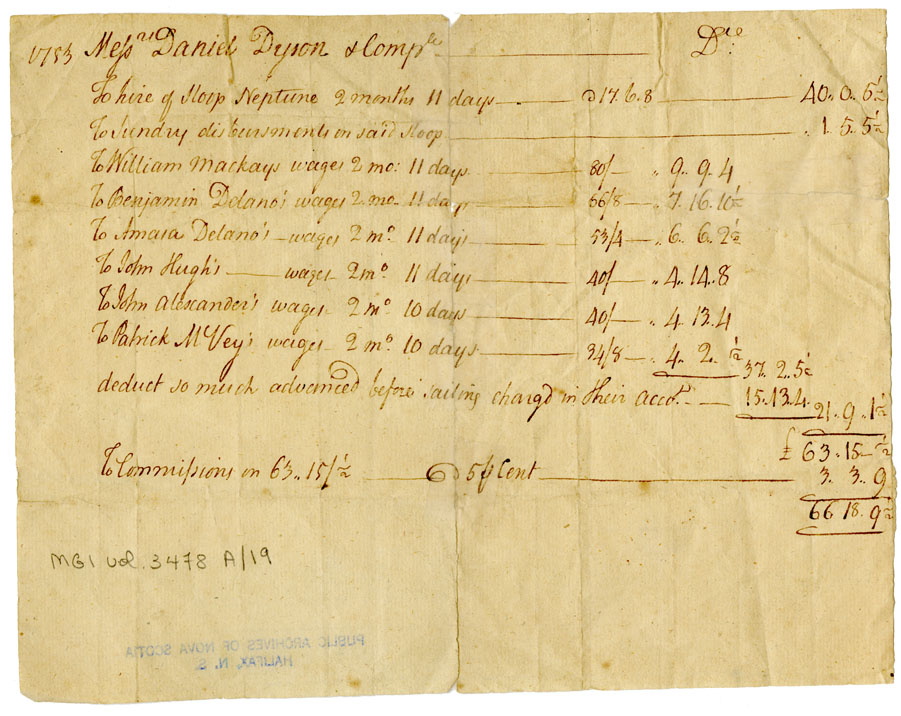 1753 Messrs Daniel Dyson & Compa Dre
To hire of Sloop Neptune 2 months 11 days @ 17.6.8 40..0..6½
To Sundry disbursments on said sloop ..1..5..5½
To William Mackays wages 2 mo: 11 days 80/ ..9..9..4
To Benjamin Delano's wages 2 mo 11 days 66/8 ..7..16..10½
To Amasa Delano's wages 2 mo 11 days 53/4 ..6..6..2½
To John Hugh's wages 2 mo 11 days 40/ ..4..14..8
To John Alexander's wages 2 mo 10 days 40/ ..4..13..4
To Patrick McVey's wages 2 mo 10 days 34/8 ..4..2..½
37..2..5½
deduct so much advanced before sailing chargd in their Accots 15..13..4
21..9..1½
£63..15..½
To Commissions on 63..15/½ @ 5 ⅌ Cent 3..3..9
66..18..9½
MG1 vol. 3478 A/19
PUBLIC ARCHIVES OF NOVA SCOTIA
HALIFAX, N. S.